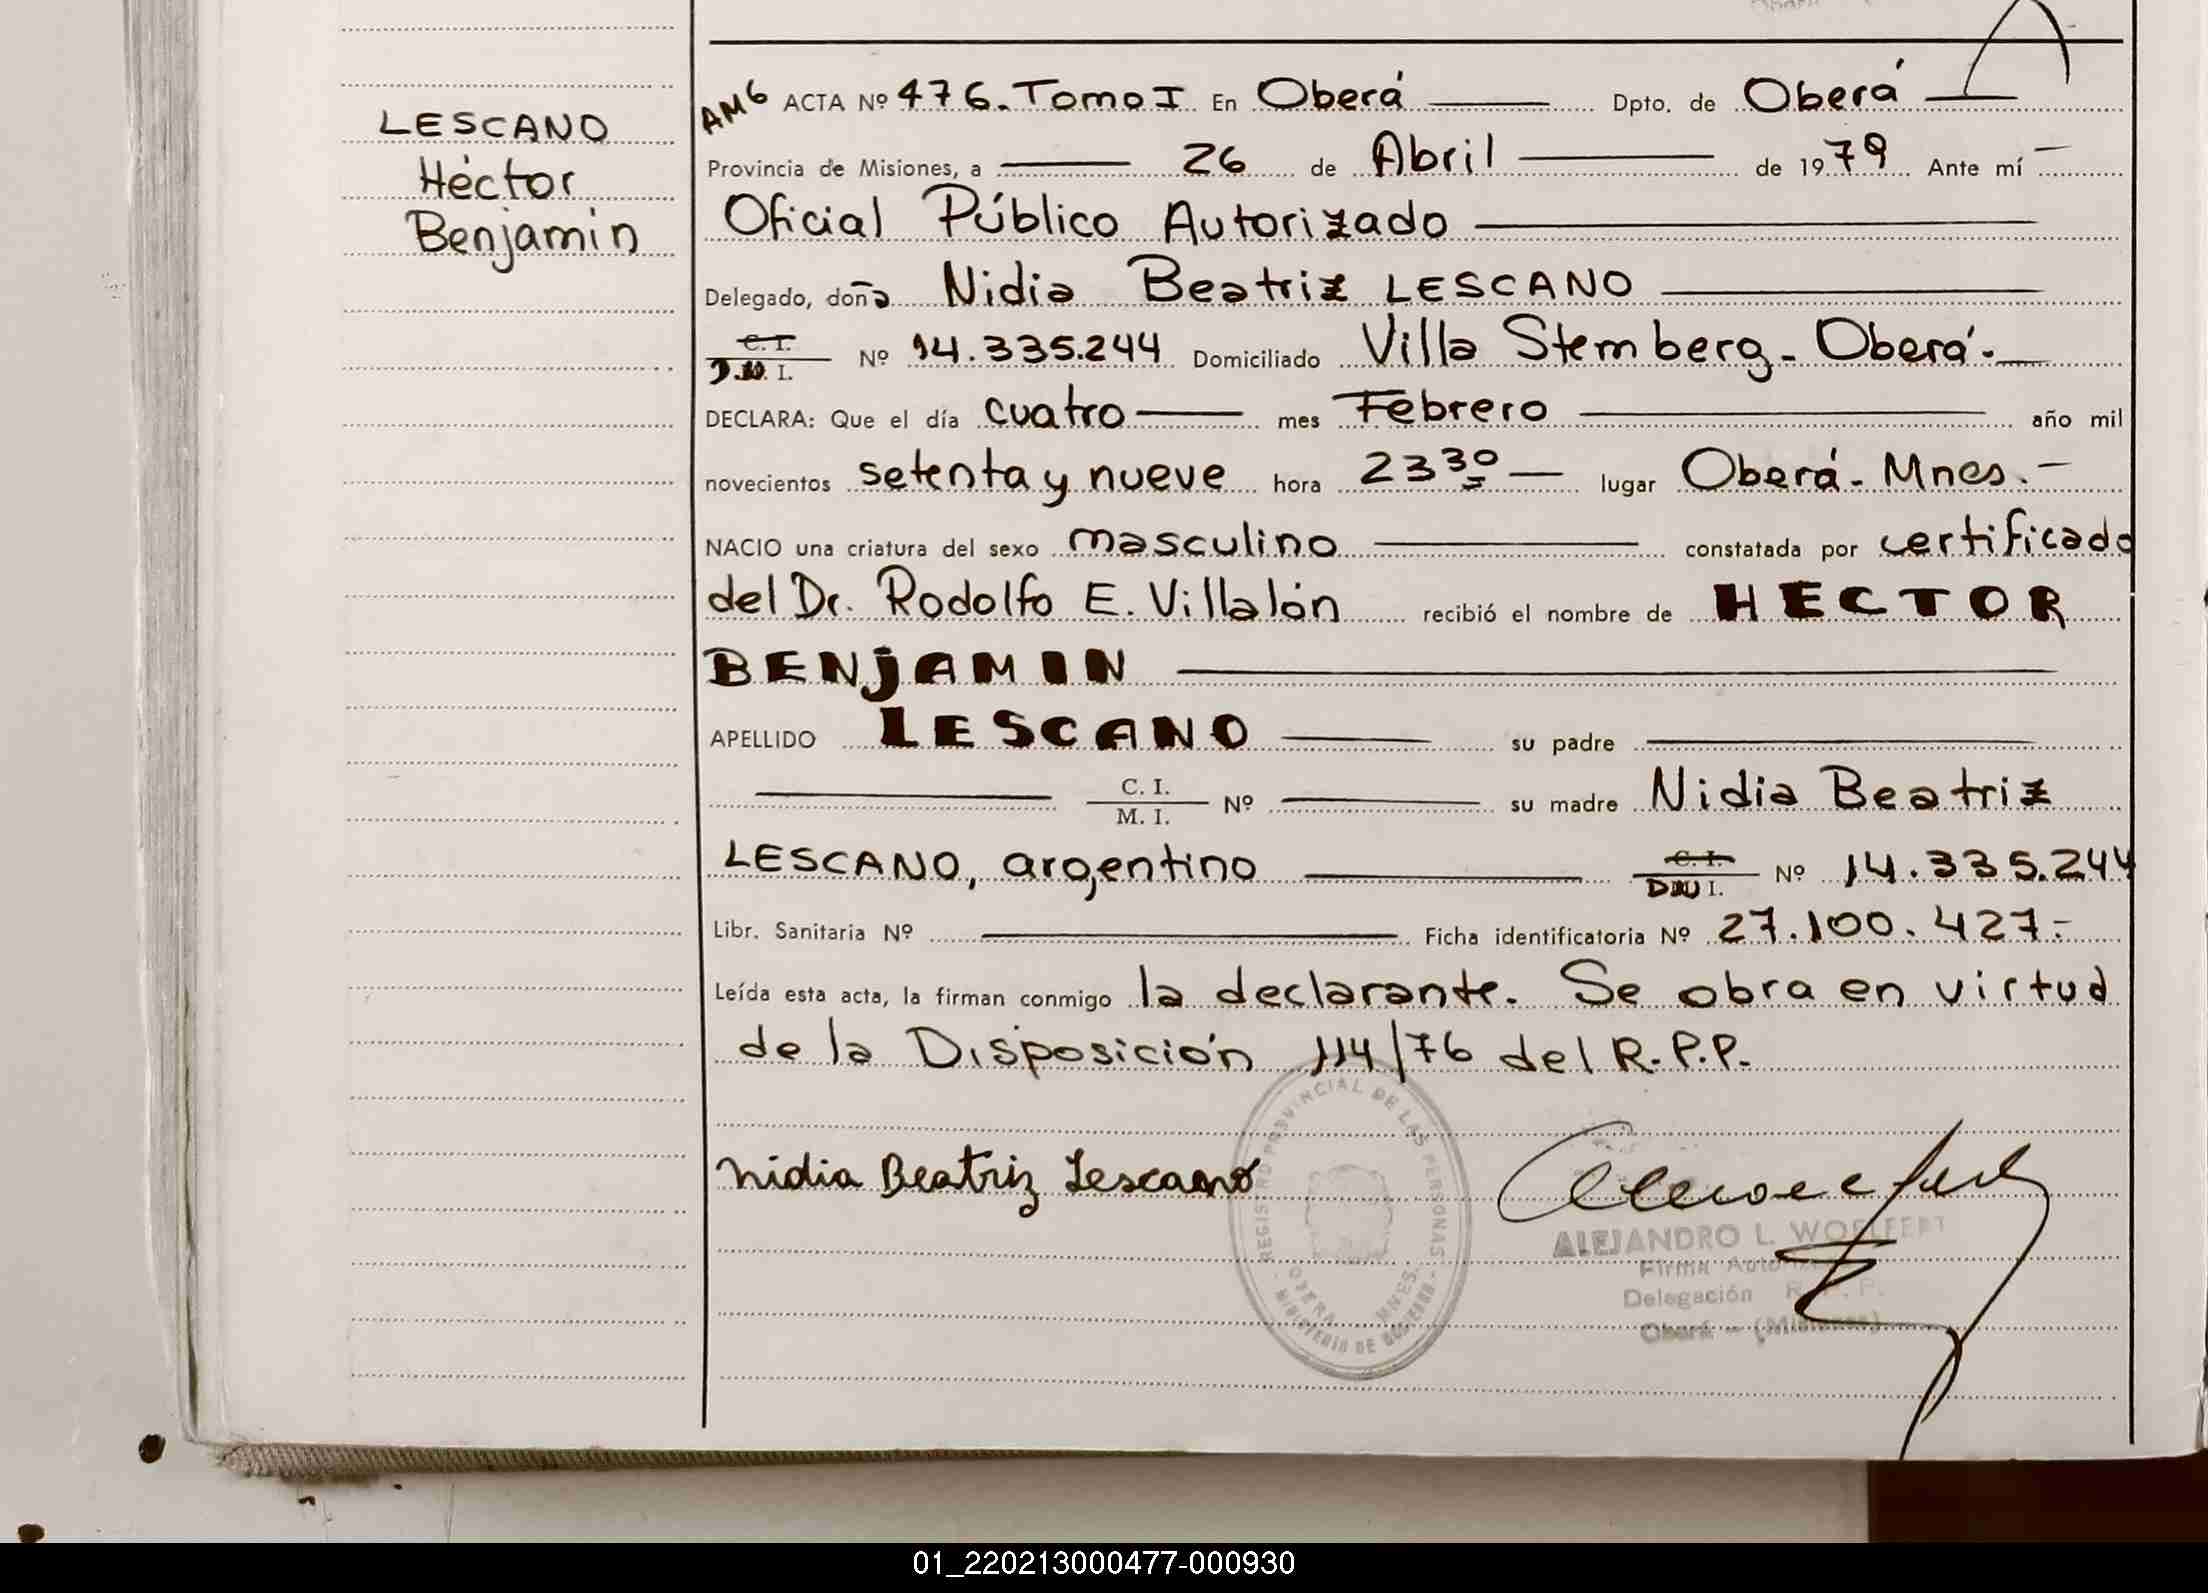 LESCANO
Héctor
Benjamin
AMG ACTA Nº 476. Tomo I En Oberá Dpto. de Oberá
Provincia de Misiones, a 26 de Abril de 1979 Ante mí
Oficial Público Autorizado
Delegado, doña Nidia Beatriz LESCANO
C. I.
D.N. I. Nº 14.335.244 Domiciliado Villa Stemberg - Oberá.
DECLARA: Que el día cuatro mes Febrero año mil
novecientos setenta y nueve hora 23 30 lugar Oberá - Mnes.
NACIO una criatura del sexo masculino constatada por certificado
del Dr. Rodolfo E. Villalón recibió el nombre de HECTOR
BENJAMIN
APELLIDO LESCANO su padre
C. I.
M. I. Nº su madre Nidia Beatriz
LESCANO, argentino C. I.
DNI. Nº 14.335.244
Libr. Sanitaria Nº Ficha identificatoria Nº 27.100.427.-
Leída esta acta, la firman conmigo la declarante. Se obra en virtud
de la Disposición 114/76 del R.P.P.
Nidia Beatriz Lescano
REGISTRO PROVINCIAL DE LAS PERSONAS
OBERA MNES.
MINISTERIO DE GOBIERNO
ALEJANDRO L. WOELFERT
Firma
Delegación R. P. P.
Oberá - (Misiones)
01_220213000477-000930